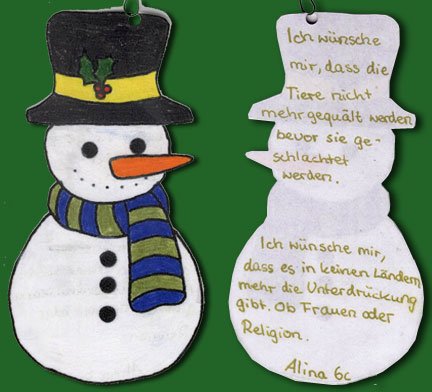 Ich wünsche
mir, dass die
Tiere nicht
mehr gequält werden
bevor sie ge-
schlachtet
werden.
Ich wünsche mir,
dass es in keinen Ländern
mehr die Unterdrückung
gibt. Ob Frauen oder
Religion.
Alina 6c